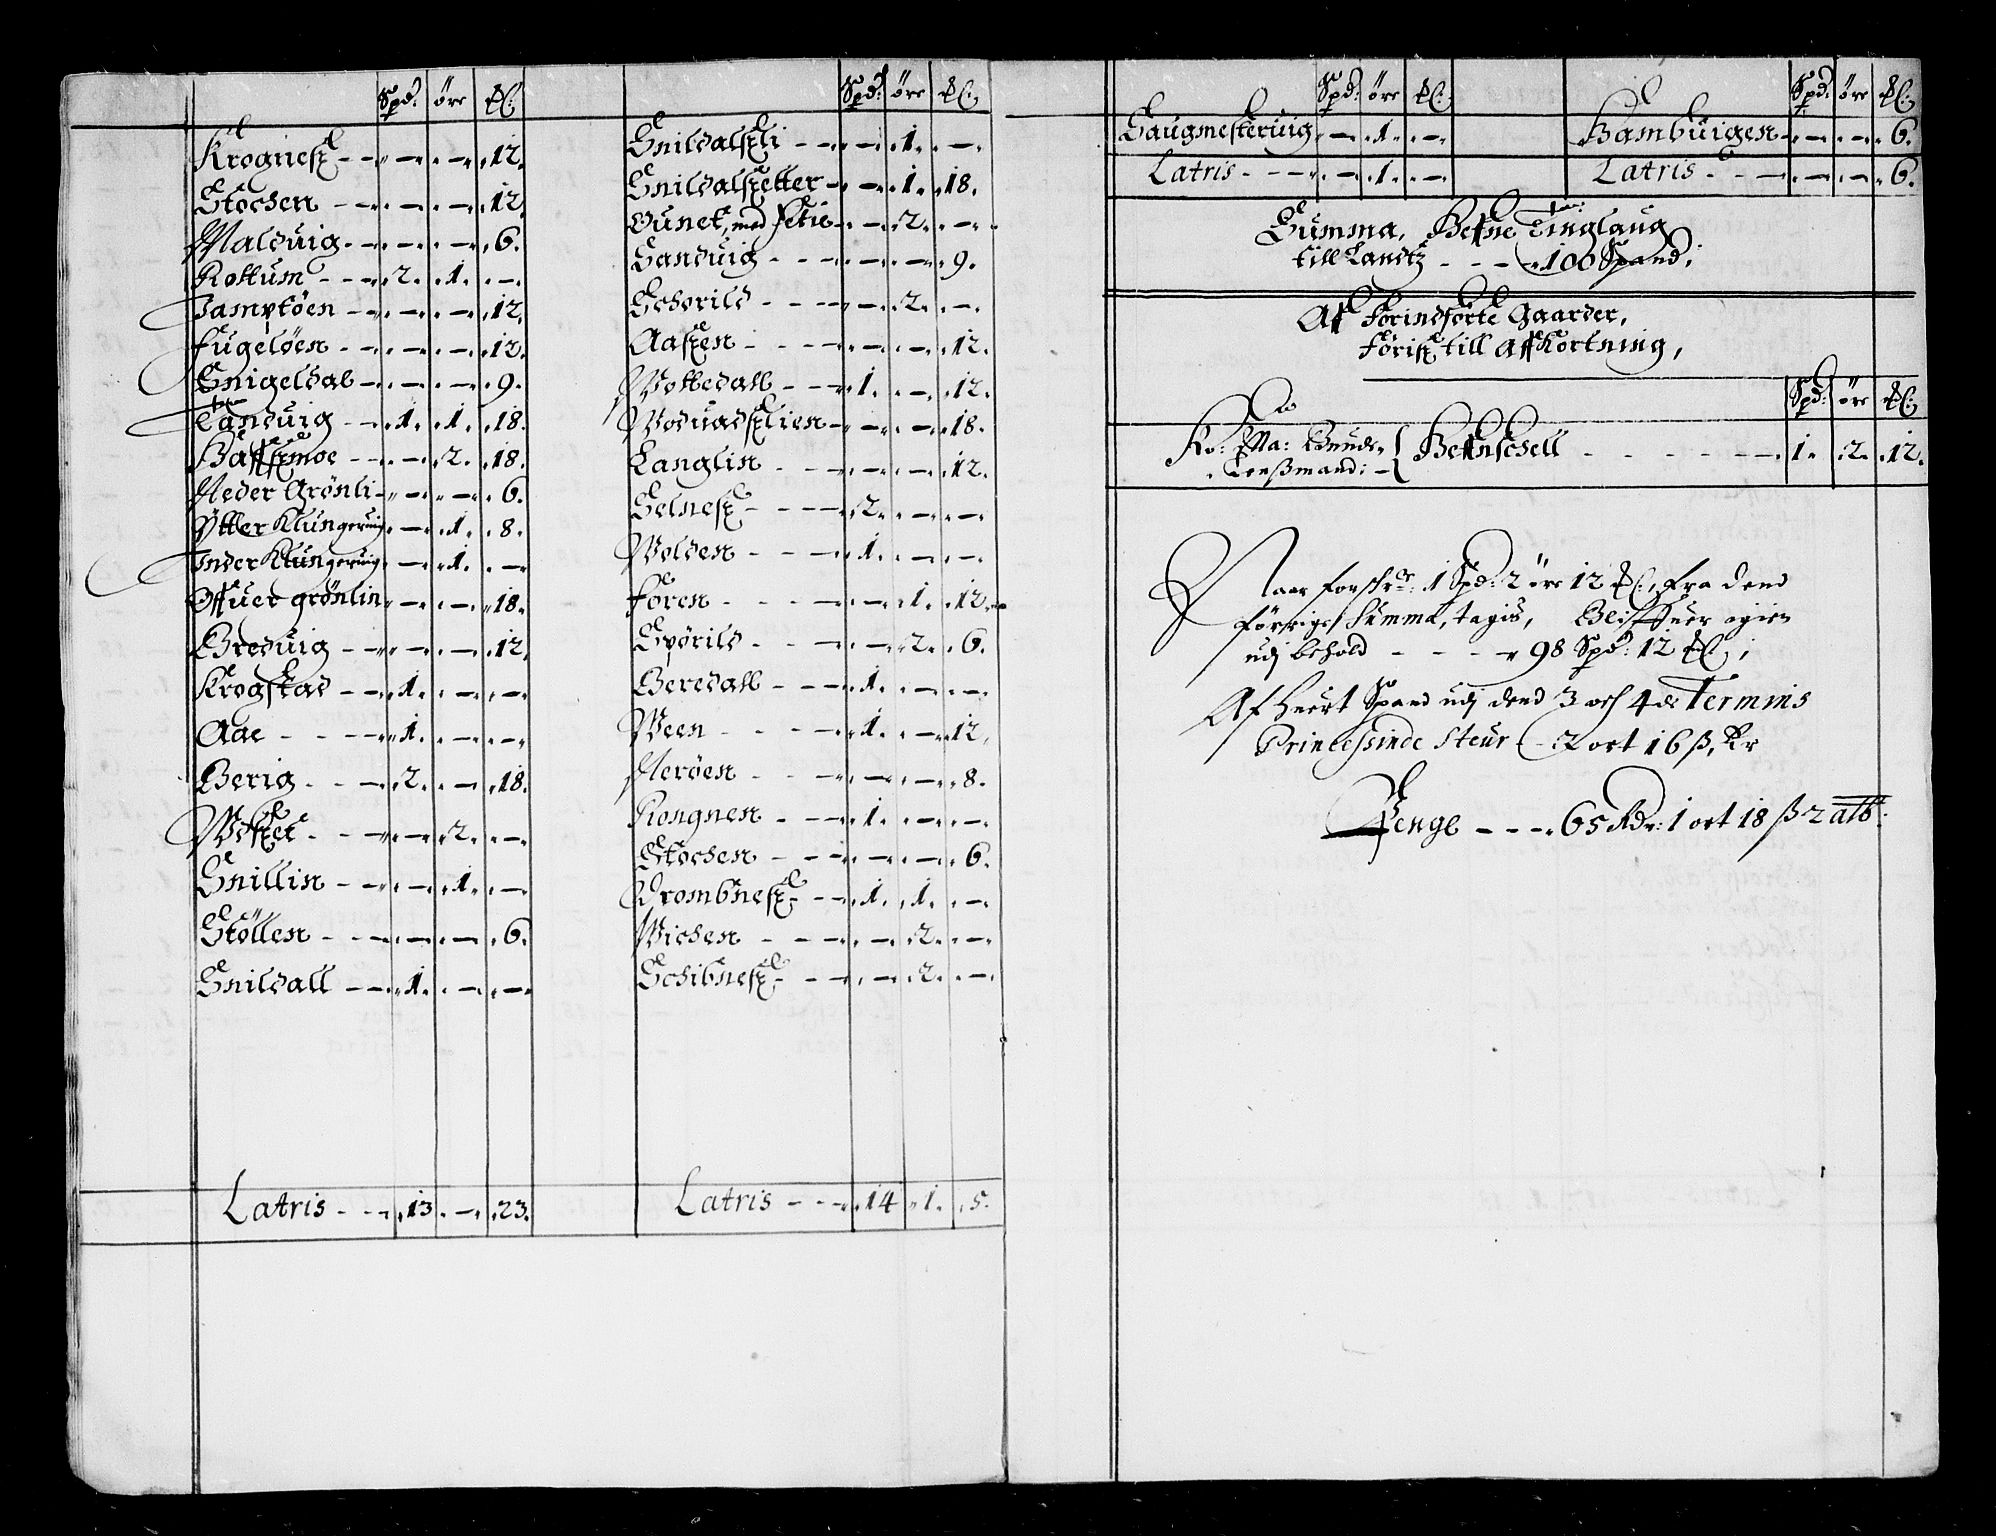 Spd: öre
Krognesz - - - 12.
Stochen - - - 12.
Malduig - - - 6.
Rottum - 2. 1. -
Jamptöen - - - 12.
Fugelöen - - - 12.
Snigeldal - - - 9.
Tanduig - 1. 1. 18.
- - 2. 18.
Neder Grönli - - - 6.
Ytter Klungeruig - 1. 8.
Inder Klungeruig - 1. -
Offuer grönlin - - - 18.
Breduig - - - 12.
Krogstad - 1. - -
Aae - 1. - -
Berig - 2. - 18.
- - 2. -
Snillin - - 1. -
Stöllen - - - 6.
Snildall - 1. - -
Latris - 13. - 23.
Spd: öre
Snildalszli - - 1. -
Snildalszetter - - 1. 18.
Vunet, med - - 2. -
Sanduig - - - 9.
Schorild - - 2. -
Aaszen - - - 12.
Wottedall - 1. - 12.
Woduadszlien - - - 18.
Langlin - - - 12.
Selnesz - 2. - -
Wolden - 1. - -
Foren - - 1. 12.
Spörild - - 2. 6.
Geredall - 1. - -
Ween - 1. - 12.
Neröen - - - 8.
Rongnen - 1. - -
Stochen - - - 6.
Vrombnesz - 1. 1. -
Wichen - - 2. -
Schibnesz - - 2. -
Latris - 14 1. 5.
Spd: öre Spd: öre
Saugmesteruig - 1. - Hambuigen - - - 6.
Latris - - - 1. - Latris - - - 6.
Summa, Beffne Tinglaug
till Landtz - - - 100 Spand.
Aff Forindförte Gaarder,
Förisz till Affkortning,
Spd: öre
Ko: Ma: Bunde
Lenszmand: - Beffnschell - - - 1. 2. 12.
Naar forschr: 1 Spd: 2 öre 12 fra dend
förrige Summa, tagis, Bliffuer igien
udj behold - - - 98 Spd: 12
Af huert Spand udj dend 3 och 4de Termins
Princessinde Steur - 2 ort 16 ß, Er
Penge - - - 65 Rdr: 1 ort 18 ß 2 alb: